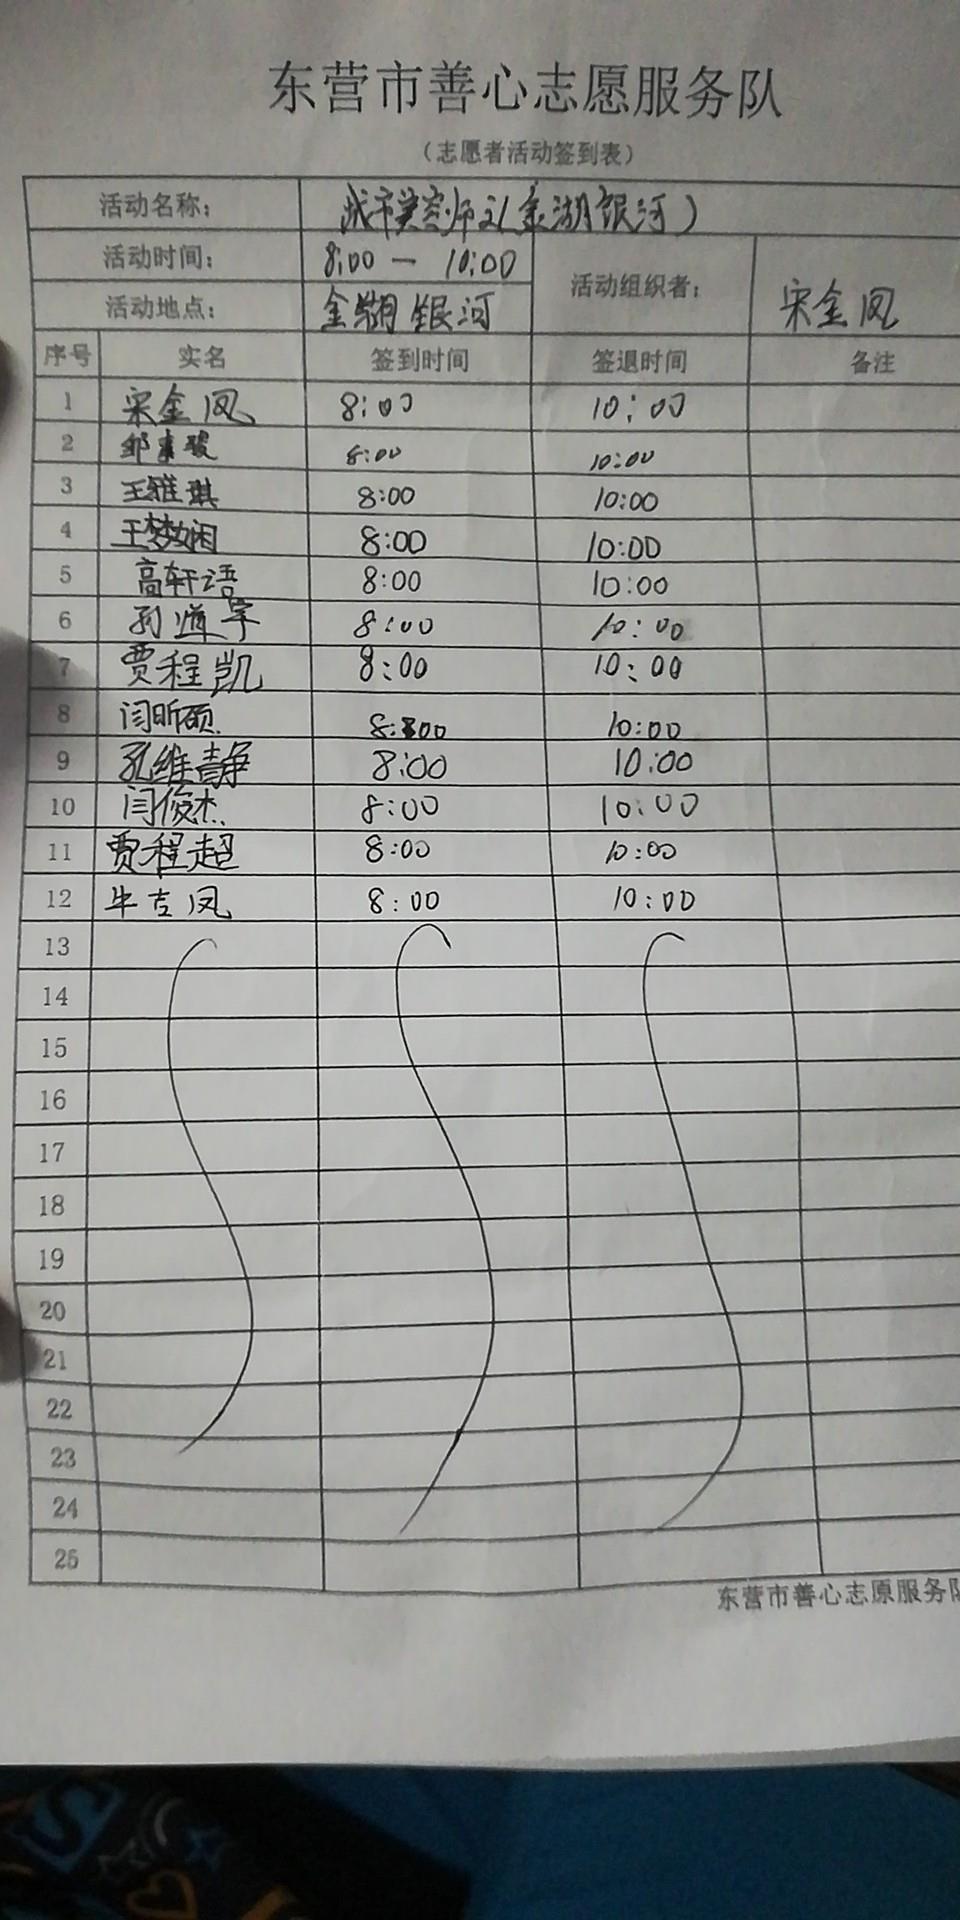 东营市善心志愿服务队
(志愿者活动签到表)
活动名称: 城市美容师(金湖银河)
活动时间: 8:00 — 10:00 活动组织者: 宋金凤
活动地点: 金湖银河
序号 实名 签到时间 签退时间 备注
1 宋金凤 8:00 10:00
2 8:00 10:00
3 王雅琪 8:00 10:00
4 王梦娴 8:00 10:00
5 高轩语 8:00 10:00
6 孙道宇 8:00 10:00
7 贾程凯 8:00 10:00
8 闫昕硕 8:00 10:00
9 孔维静 8:00 10:00
10 闫俊杰 8:00 10:00
11 贾程超 8:00 10:00
12 牛吉凤 8:00 10:00
13
14
15
16
17
18
19
20
21
22
23
24
25
东营市善心志原服务队